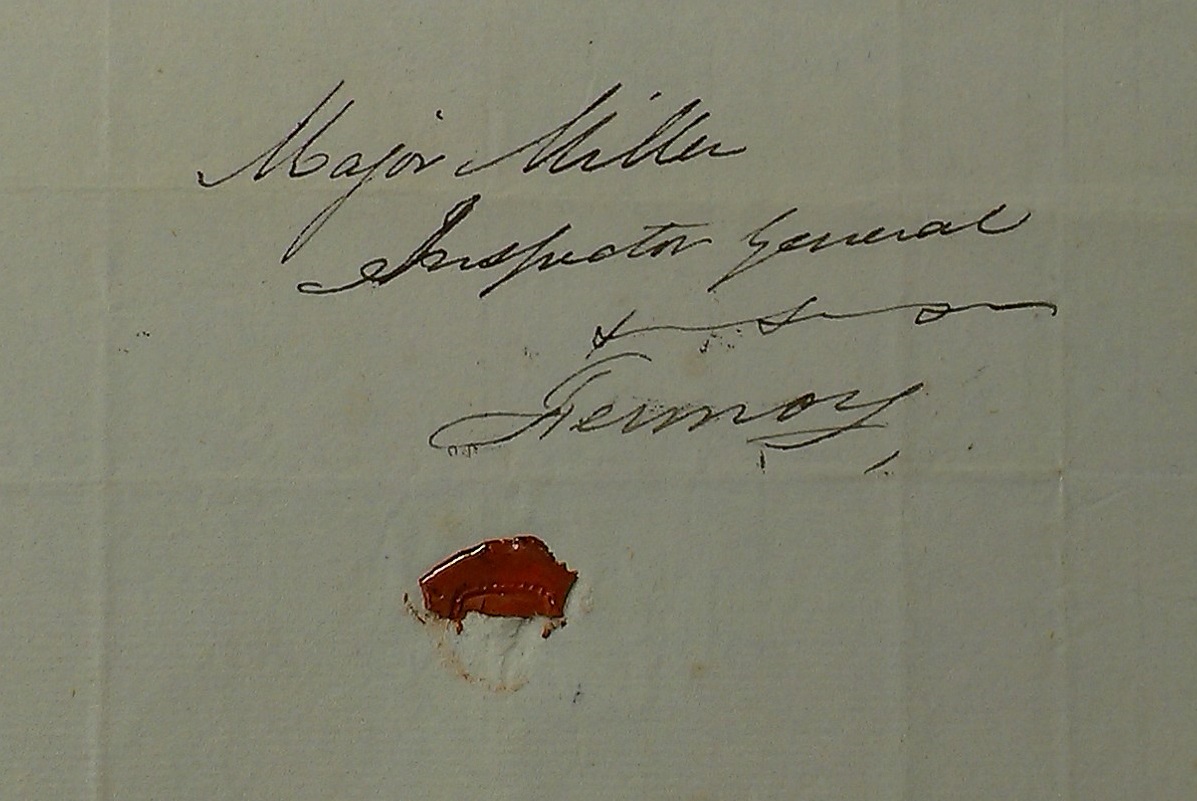 Major Miller
Inspector General
Fermoy